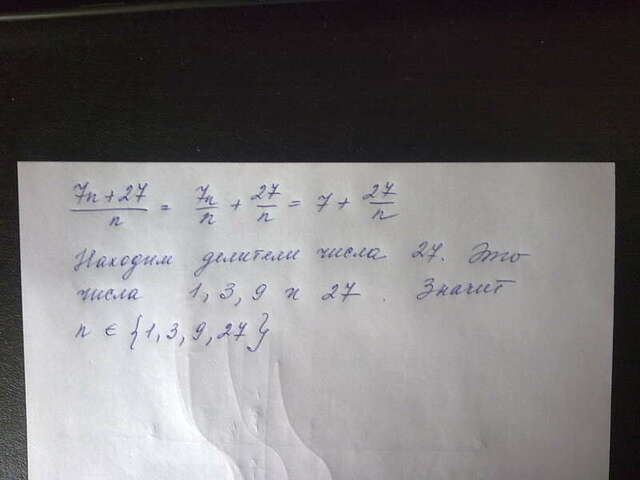 (7n+27)/n = 7n/n + 27/n = 7 + 27/n
Находим делители числа 27. Это
числа 1, 3, 9 и 27. Значит
n ∈ {1, 3, 9, 27}